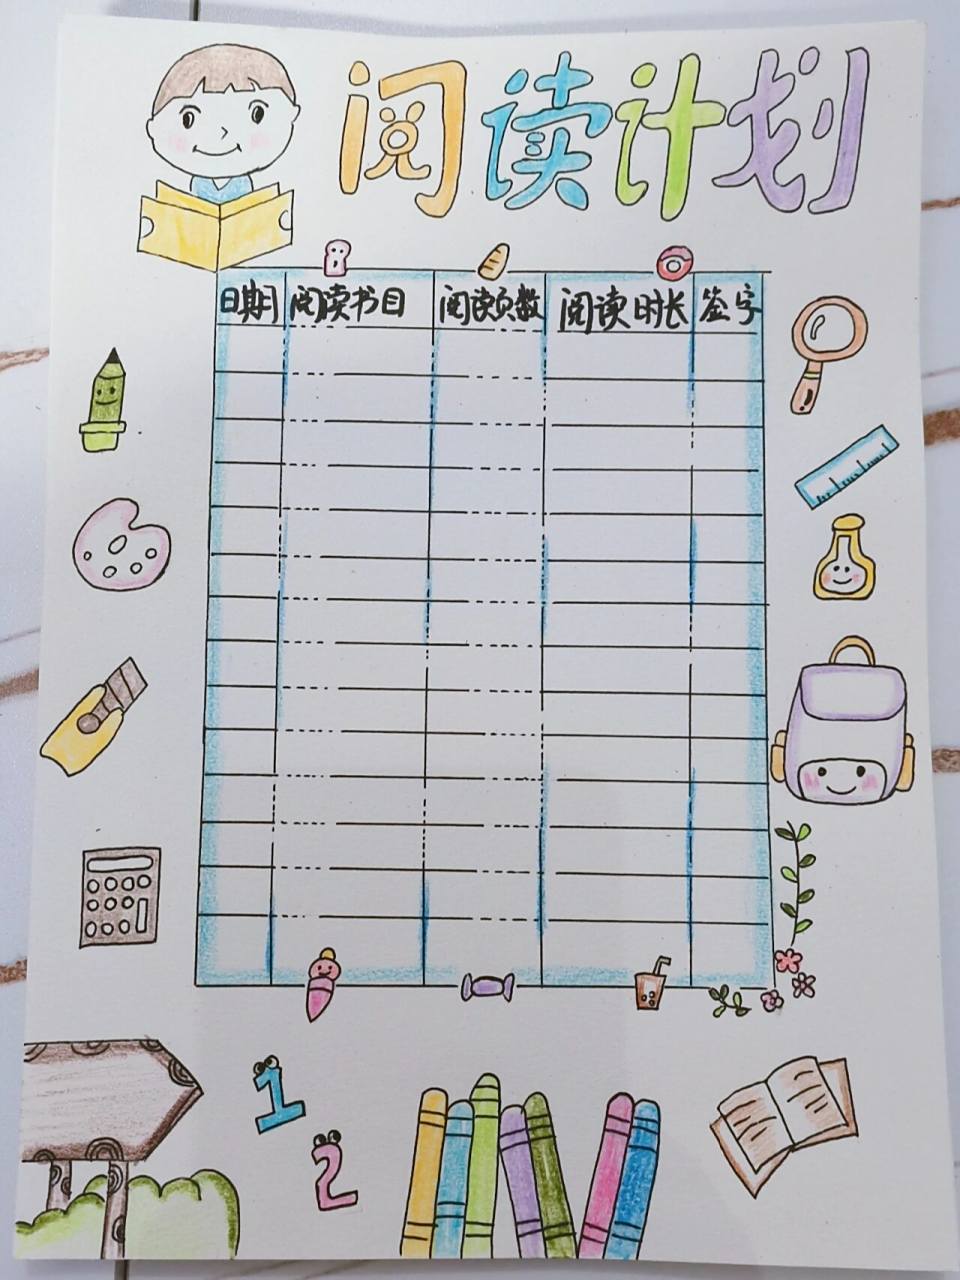 阅读计划
日期 阅读书目 阅读页数 阅读时长 签字
1
2